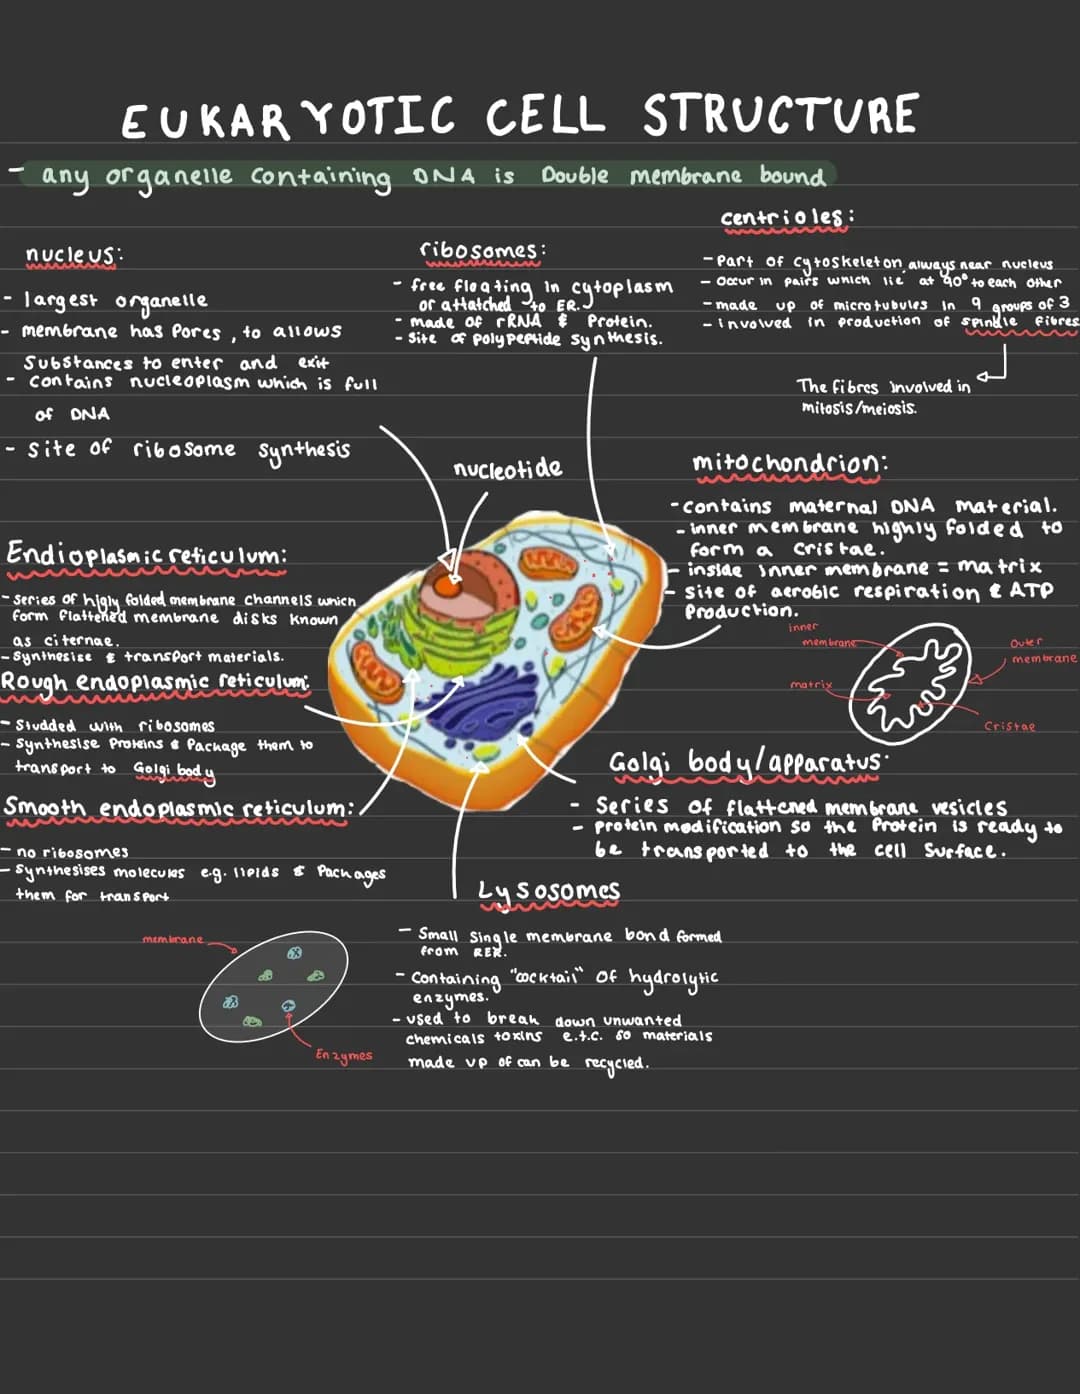 EUKARYOTIC CELL STRUCTURE
- any organelle containing DNA is Double membrane bound
nucleus:
- largest organelle
- membrane has Pores, to allows
Substances to enter and exit
- contains nucleoplasm which is full
of DNA
- site of ribosome synthesis
ribosomes:
- free floating in cytoplasm
or attatched to ER.
- made of rRNA & Protein.
- Site of polypeptide synthesis.
centrioles:
- Part of cytoskeleton, always near nucleus
- Occur in pairs which lie at 90° to each other
- made up of microtubules in 9 groups of 3
- involved in production of spindle fibres
The fibres involved in
mitosis/meiosis.
nucleotide
mitochondrion:
- contains maternal DNA material.
- inner membrane highly folded to
form a cristae.
- inside inner membrane = matrix
- site of aerobic respiration & ATP
Production.
inner
membrane
matrix
outer
membrane
Cristae
Endioplasmic reticulum:
- Series of higly folded membrane channels which
form flattened membrane disks known
as citernae.
- Synthesise & transport materials.
Rough endoplasmic reticulum:
- Studded with ribosomes
- Synthesise Proteins & Package them to
transport to Golgi body
Smooth endoplasmic reticulum:
- no ribosomes
- Synthesises molecules e.g. lipids & Packages
them for transport
membrane
Enzymes
Golgi body/apparatus:
- Series of flattened membrane vesicles
- protein modification so the Protein is ready to
be transported to the cell Surface.
Lysosomes
- Small Single membrane bond formed
from RER.
- Containing "cocktail" of hydrolytic
enzymes.
- used to break down unwanted
chemicals toxins e.t.c. so materials
made up of can be recycled.